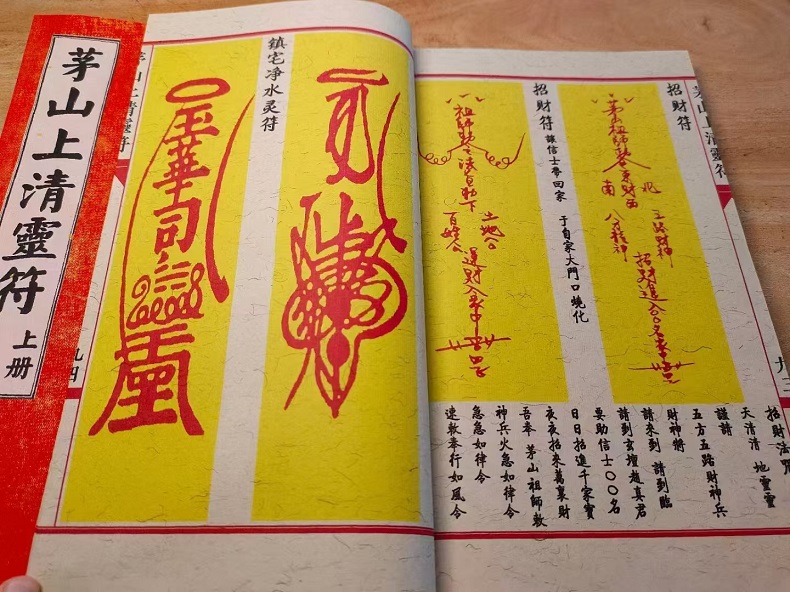 茅山上清靈符
上册
茅山上清靈符
九三
招財符
茅山祖師
五路財神
招財符 讓信士帶回家 于自家大門口燒化
祖師
土地公
百姓公
招財法咒
天清清 地靈靈
謹請
五方五路財神兵
財神將
請來到 請到臨
請到玄壇趙真君
要助信士〇〇名
日日招進千家寶
夜夜招來萬裏財
吾奉 茅山祖師敕
神兵火急如律令
急急如律令
速敕奉行如風令
鎮宅净水灵符
玉華司
茅山上清靈符
九四